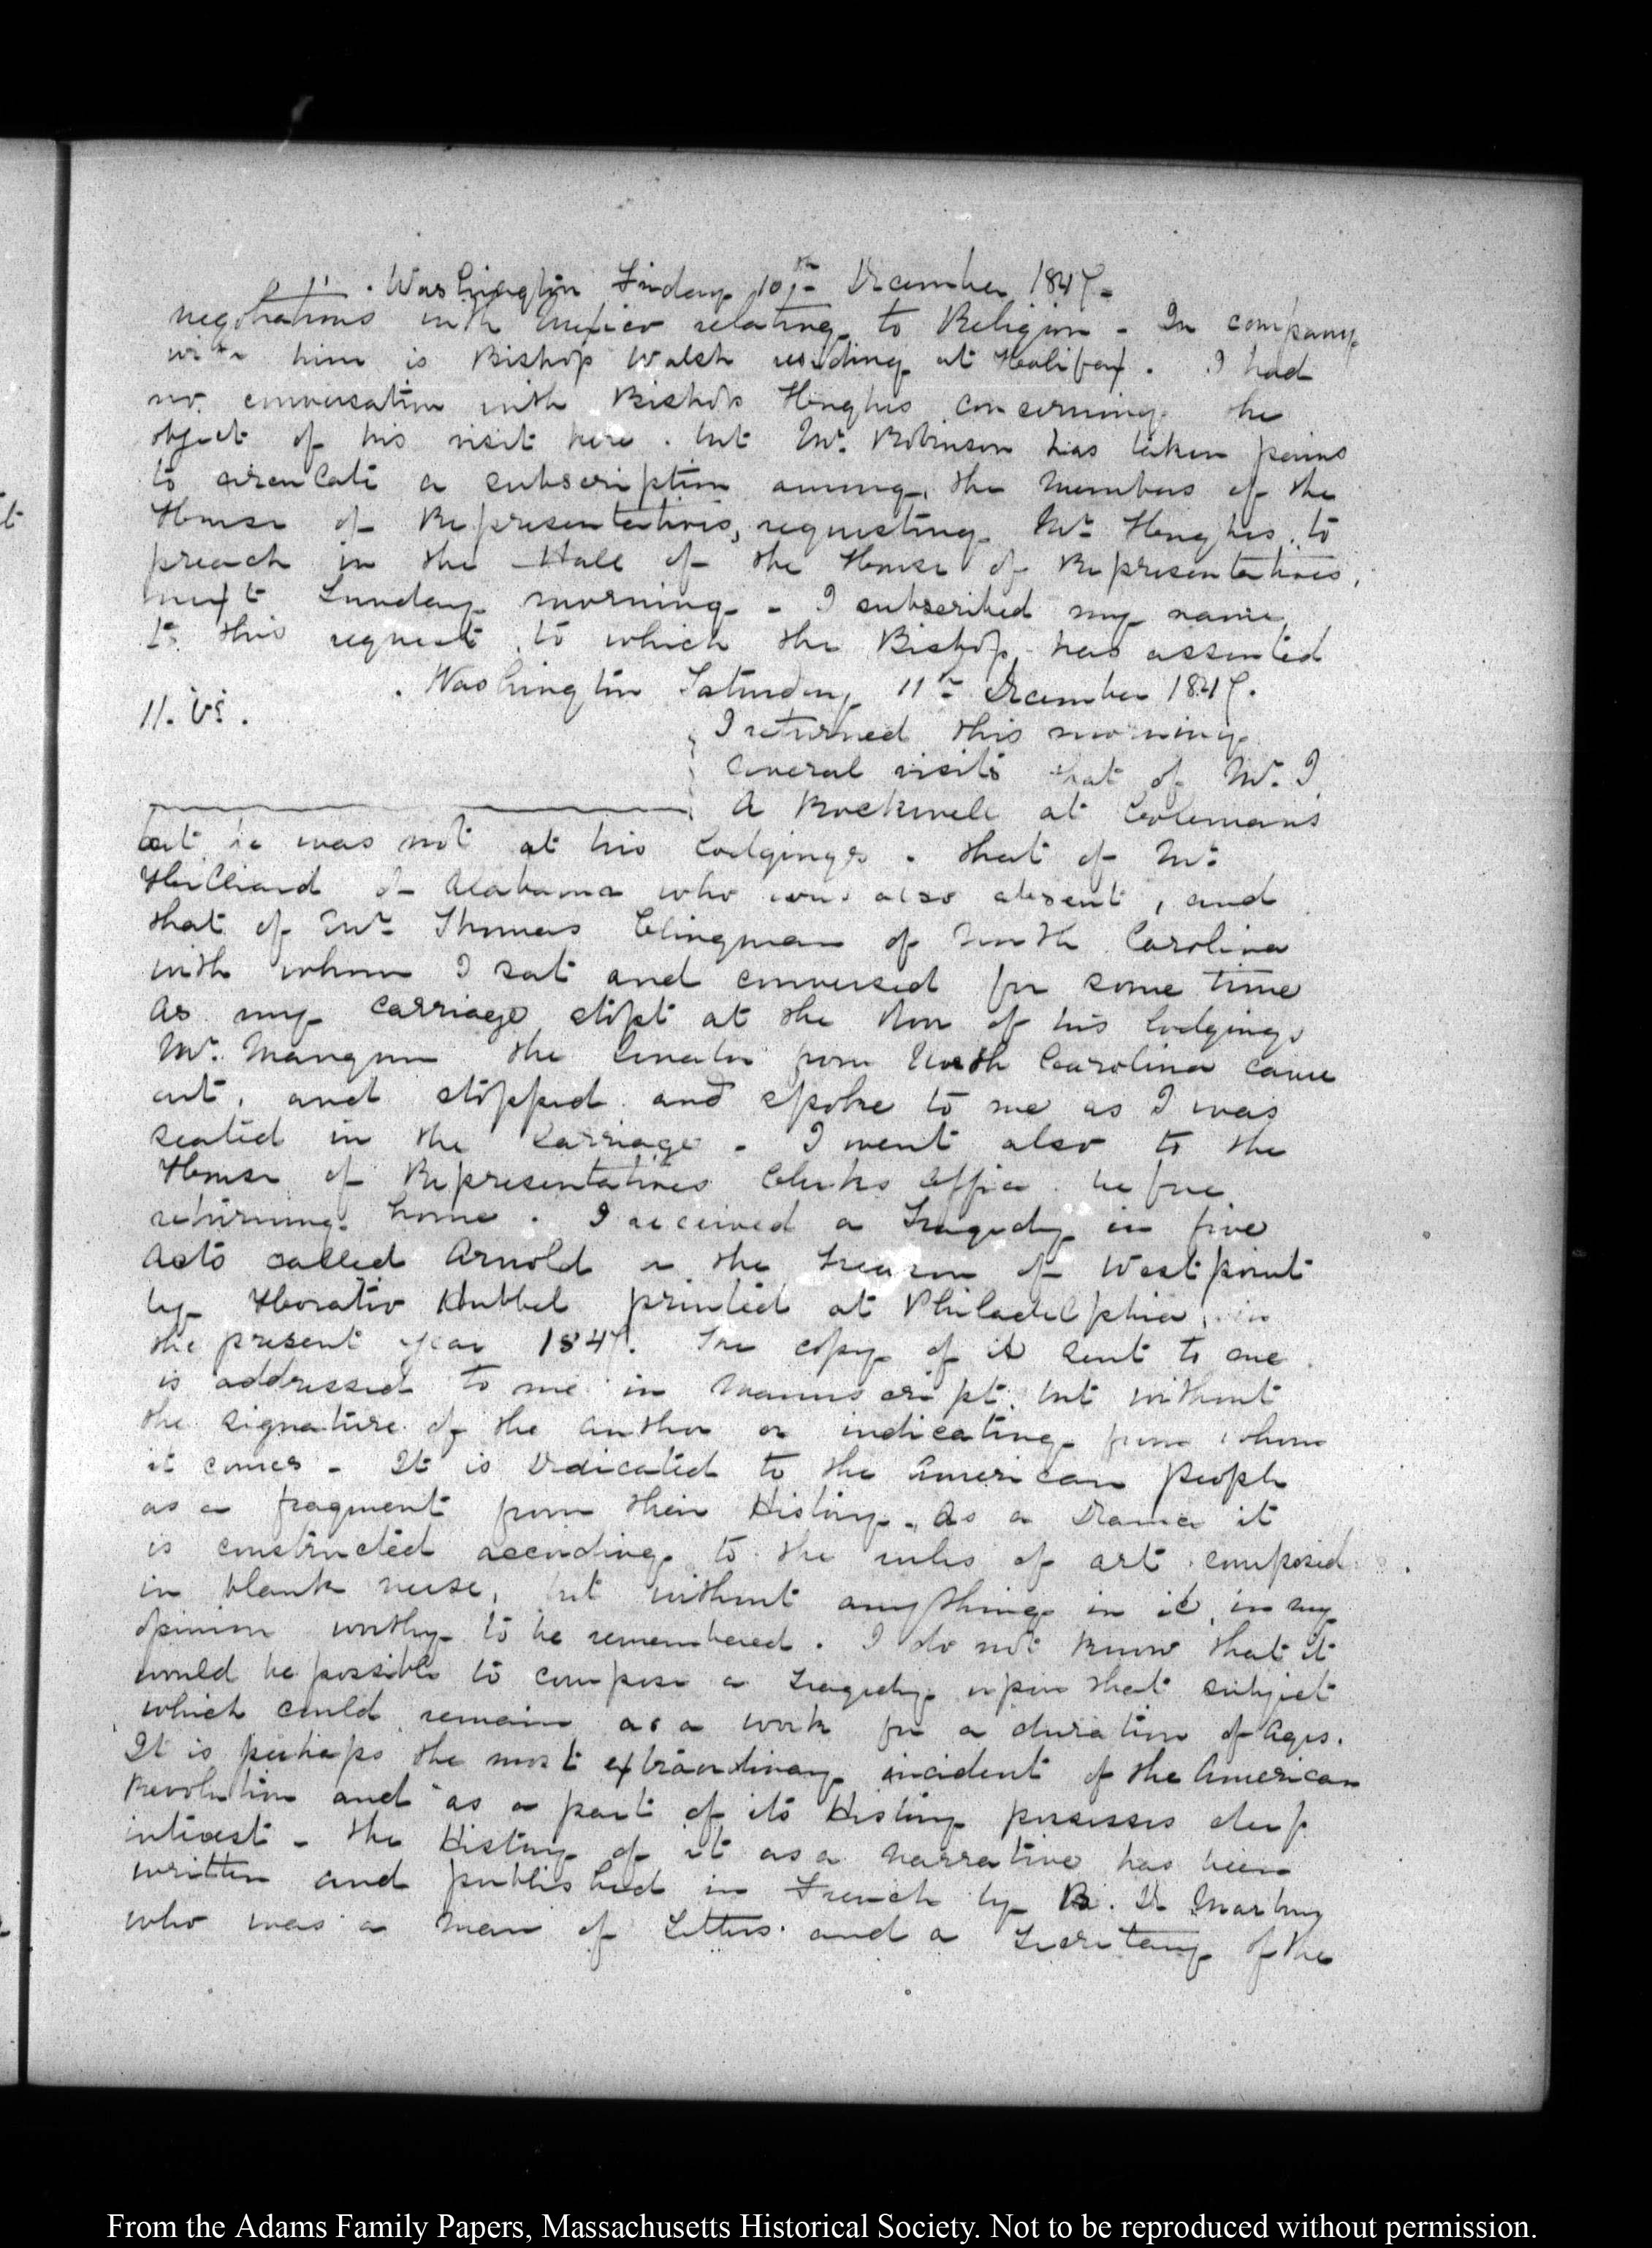 Washington Friday 10th December 1847.
negotiations with Mexico relating to Religion - In company
with him is Bishop Walsh residing at Halifax. I had
no conversation with Bishop Hughes concerning the
object of his visit here. but Mr. Robinson has taken pains
to circulate a subscription among the Members of the
House of Representatives, requesting Mr Hughes to
preach in the Hall of the House of Representatives,
next Sunday morning - I subscribed my name
to this request to which the Bishop has assented
Washington Saturday 11th December 1847.
11. VI.
I returned this morning
several visits that of Mr. J.
A Rockwell at Colemans
but he was not at his lodgings. that of Mr
Hilliard of Alabama who was also absent, and
that of Mr Thomas Clingman of North Carolina
with whom I sat and conversed for some time
As my carriage stopt at the door of his lodgings
Mr. Mangum the Senator from North Carolina came
out, and stopped and spoke to me as I was
seated in the Carriage - I went also to the
House of Representatives Clerks Office before
returning home. I received a Tragedy in five
Acts called Arnold or the Treason of West point
by Horatio Hubbel printed at Philadelphia, in
the present year 1847. The copy of it sent to me
is addressed to me in Manuscript, but without
the signature of the author or indicating from whom
it comes - It is Dedicated to the American People
as a fragment from their History. As a Drama it
is constructed according to the rules of art composed
in blank verse, but without any thing in it, in my
opinion worthy to be remembered. I do not know that it
would be possible to compose a tragedy upon that subject
which could remain as a work for a duration of Ages.
It is perhaps the most extraordinary incident of the American
Revolution and as a part of its History possesses deep
interest - the History of it as a Narrative has been
written and published in French by B. De Marbois
who was a Man of Letters and a Secretary of the
From the Adams Family Papers, Massachusetts Historical Society. Not to be reproduced without permission.